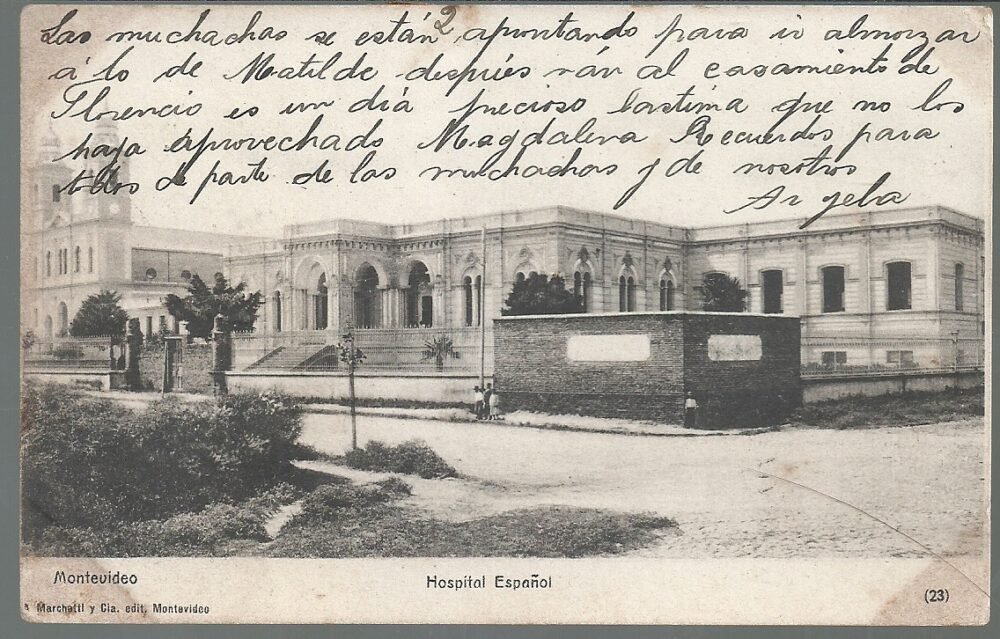 2
Las muchachas se están aprontando para ir almorzar
á lo de Matilde después ván al casamiento de
Florencio es un día precioso lastima que no los
haya aprovechado Magdalena Recuerdos para
todos de parte de las muchachas y de nosotros
Montevideo
Hospital Español
(23)
Marchetti y Cia. edit. Montevideo